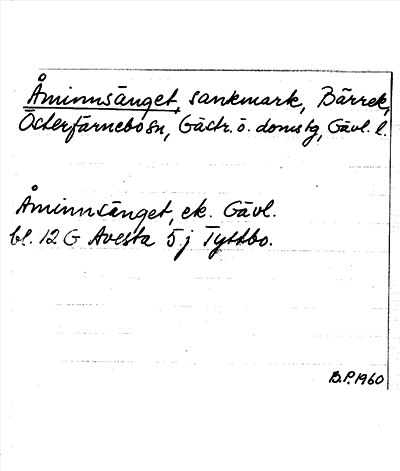 Åminnsänget, sankmark, Bärrek,
Österfärnebo sn, Gästr. ö. domstg, Gävl. l.
Åminnsänget, ek. Gävl.
bl. 12 G Avesta 5 j Tyttbo.
B.P. 1960